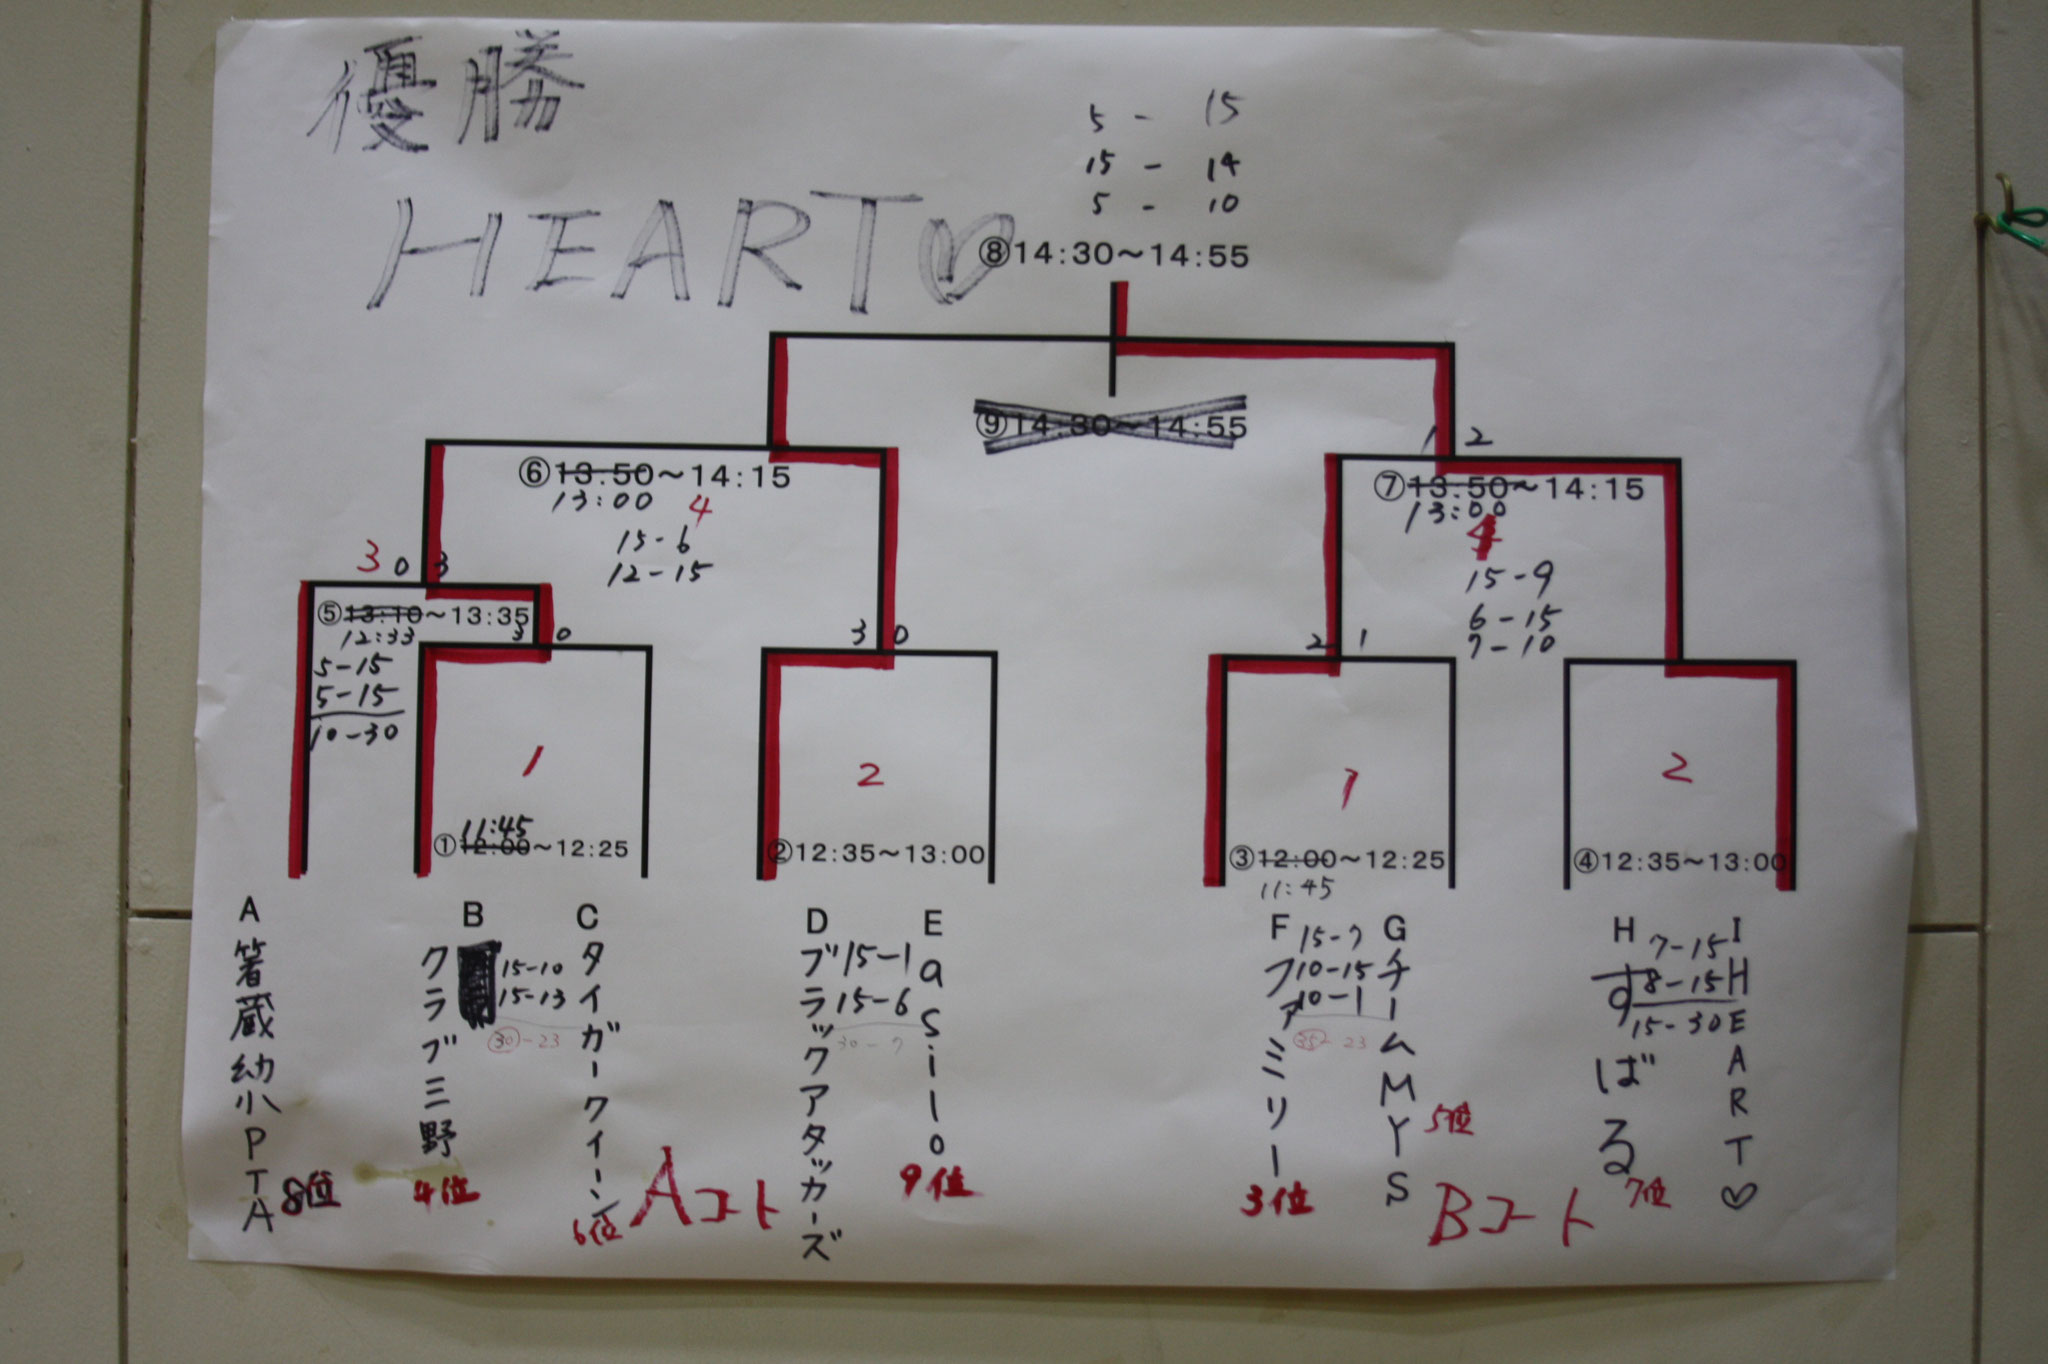 優勝
HEART♡
5 - 15
15 - 14
5 - 10
⑧14:30～14:55
⑨14:30～14:55
⑥13:50～14:15
13:00 4
15-6
12-15
1 2
⑦13:50～14:15
13:00
4
15-9
6-15
7-10
3 0 3
⑤13:10～13:35
12:33
5-15
5-15
10-30
3 0
3 0
2 1
1
2
1
2
11:45
①12:00～12:25
②12:35～13:00
③12:00～12:25
11:45
④12:35～13:00
A
箸蔵幼小PTA
8位
B
クラブ三野
4位
15-10
15-13
30-23
C
タイガークィーン
6位
Aコート
D
ブラックアタッカーズ
15-1
15-6
30-7
E
asilo
9位
F
ファミリー
3位
15-7
10-15
10-1
35-23
G
チームMYS
5位
Bコート
H
すばる
7位
7-15
8-15
15-30
I
HEART♡